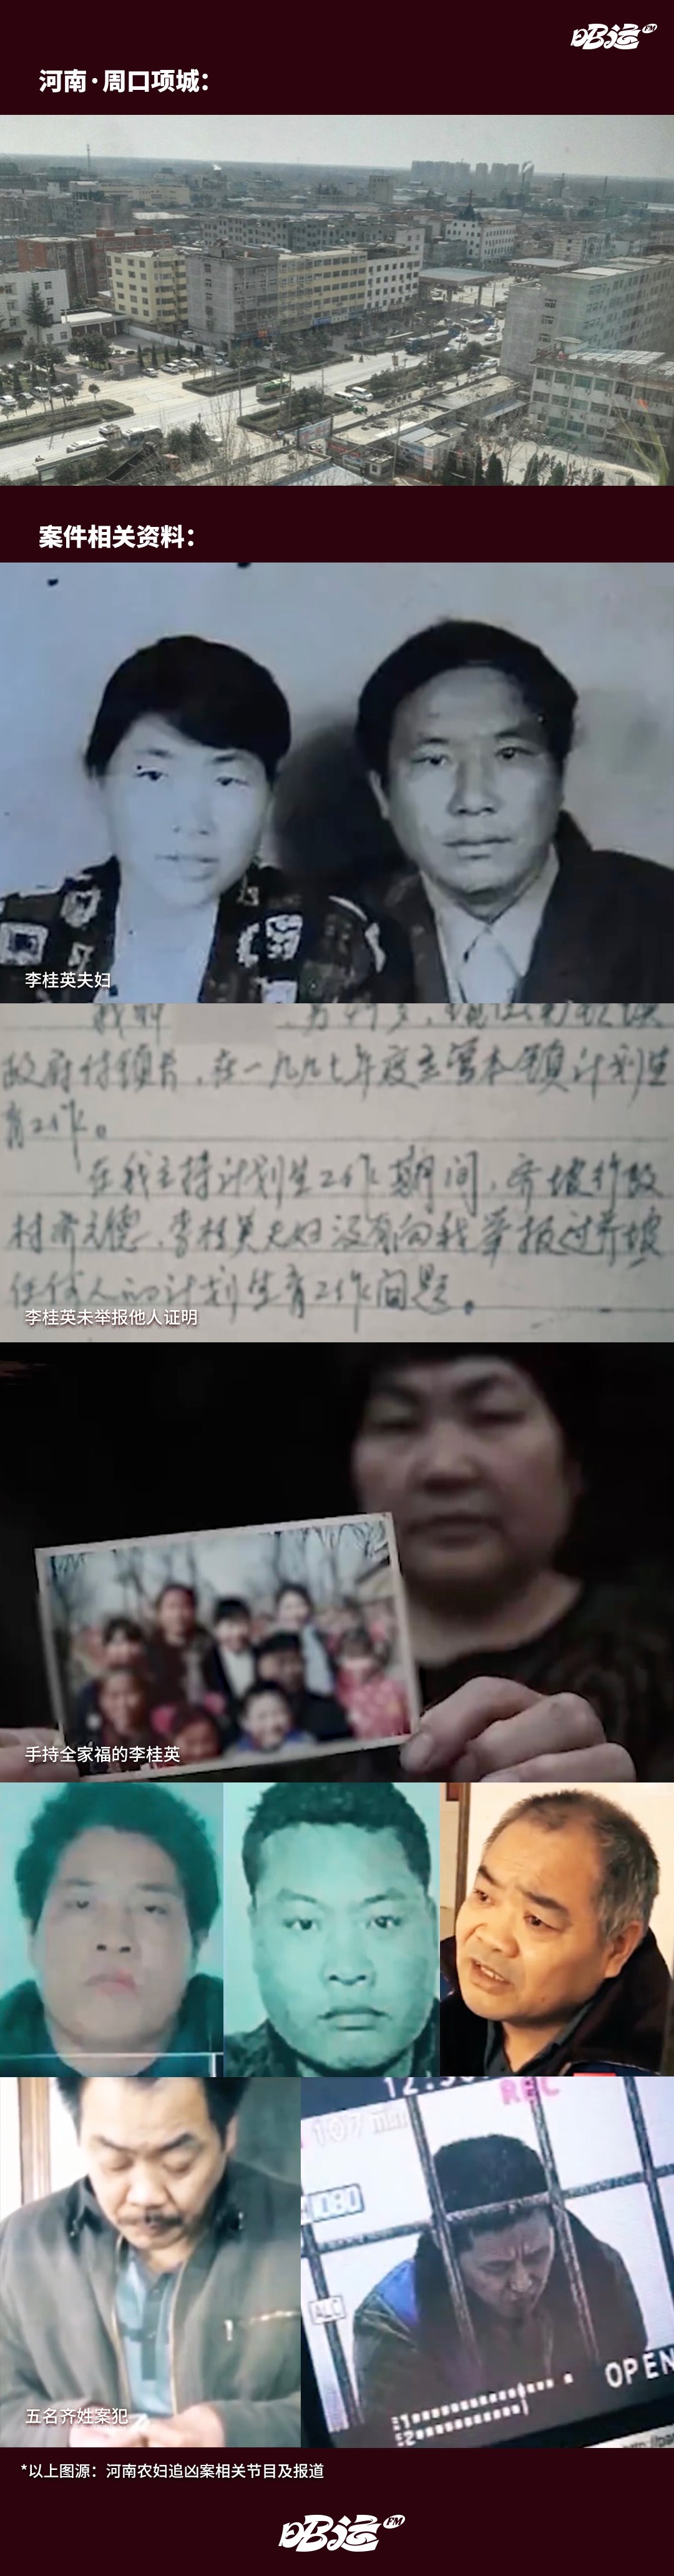 昭运FM
河南·周口项城：
案件相关资料：
李桂英夫妇
政府付镇长，在一九九七年度主管本镇计划生
育工作。
在我主持计划生工作期间，齐坡行政
村齐元德、李桂英夫妇没有向我举报过齐坡
任何人的计划生育工作问题。
李桂英未举报他人证明
手持全家福的李桂英
REC
1080
ALC
OPEN
1
2
五名齐姓案犯
*以上图源：河南农妇追凶案相关节目及报道
昭运FM